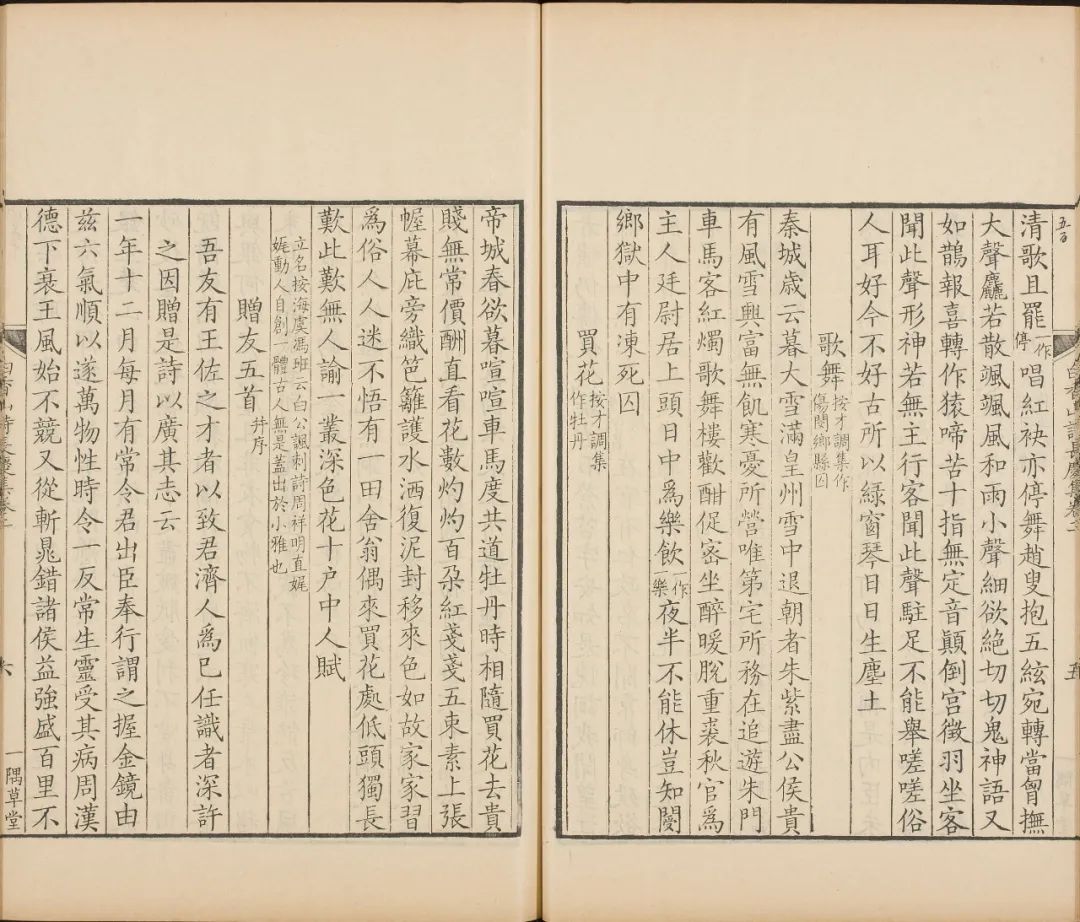 清歌且罷一作停唱紅袂亦停舞趙叟抱五絃宛轉當胷撫
大聲麤若散颯颯風和雨小聲細欲絕切切鬼神語又
如鵲報喜轉作猿啼苦十指無定音顛倒宫徵羽坐客
聞此聲形神若無主行客聞此聲駐足不能舉嗟嗟俗
人耳好今不好古所以緑窗琴日日生塵土
歌舞按才調集作傷閿鄉縣囚
秦城歲云暮大雪滿皇州雪中退朝者朱紫盡公侯貴
有風雪興富無飢寒憂所營唯第宅所務在追遊朱門
車馬客紅燭歌舞樓歡酣促密坐醉暖脫重裘秋官爲
主人廷尉居上頭日中爲樂飲一作樂夜半不能休豈知閿
鄉獄中有凍死囚
買花按才調集作牡丹
帝城春欲暮喧喧車馬度共道牡丹時相隨買花去貴
賤無常價酬直看花數灼灼百朶紅戔戔五束素上張
幄幕庇旁織笆籬護水洒復泥封移來色如故家家習
爲俗人人迷不悟有一田舍翁偶來買花處低頭獨長
歎此歎無人諭一叢深色花十户中人賦
立名按海虞馮班云白公諷刺詩周祥明直娓
娓動人自創一體古人無是蓋出於小雅也
贈友五首并序
吾友有王佐之才者以致君濟人爲已任識者深許
之因贈是詩以廣其志云
一年十二月每月有常令君出臣奉行謂之握金鏡由
兹六氣順以遂萬物性時令一反常生靈受其病周漢
德下衰王風始不競又從斬鼂錯諸侯益強盛百里不
六
一隅草堂